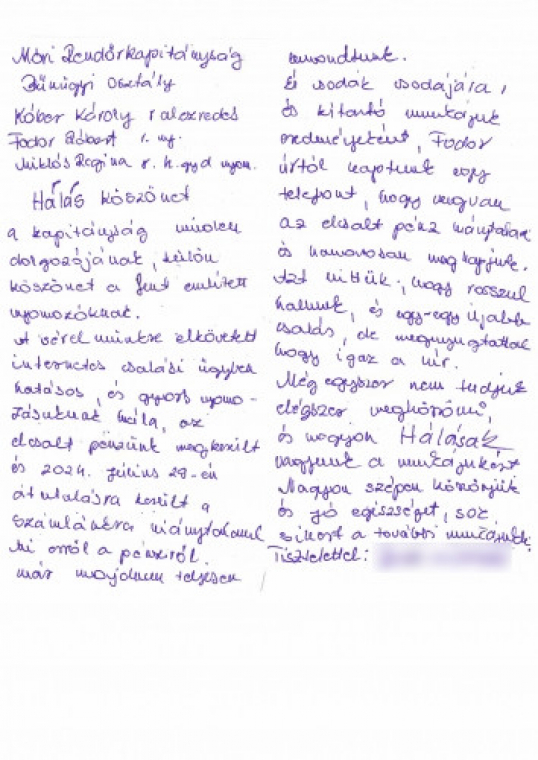 Móri Rendőrkapitányság
Bűnügyi Osztály
Kóbor Károly r alezredes
Fodor Róbert r. ny.
Miklós Regina r. h. gyd nyom.
Hálás köszönet
a kapitányság minden
dolgozójának, külön
köszönet a fent említett
nyomozóknak.
A vérel minkre elkövetett
internetes csalási ügyben
hatásos, és gyors nyomo-
zásuknak hála, az
elcsalt pénzünk megkerült
és 2024. július 29-én
átutalásra került a
számlánkra hiánytalanul
Mi erről a pénzről
már majdnem teljesen
lemondtunk.
És csodák csodájára,
és kitartó munkájuk
eredményeként, Fodor
úrtól kaptunk egy
telefont, hogy megvan
az elcsalt pénz hiánytalan
és hamarosan megkapjuk.
Azt hittük, hogy rosszul
hallunk, és egy-egy újabb
csalás, de megnyugtattak
hogy igaz a hír.
Még egyszer nem tudjuk
elégszer megköszönni,
és nagyon Hálásak
vagyunk a munkájukért
Nagyon szépen köszönjük
és jó egészséget, sok
sikert a további munkájukhoz
Tisztelettel: